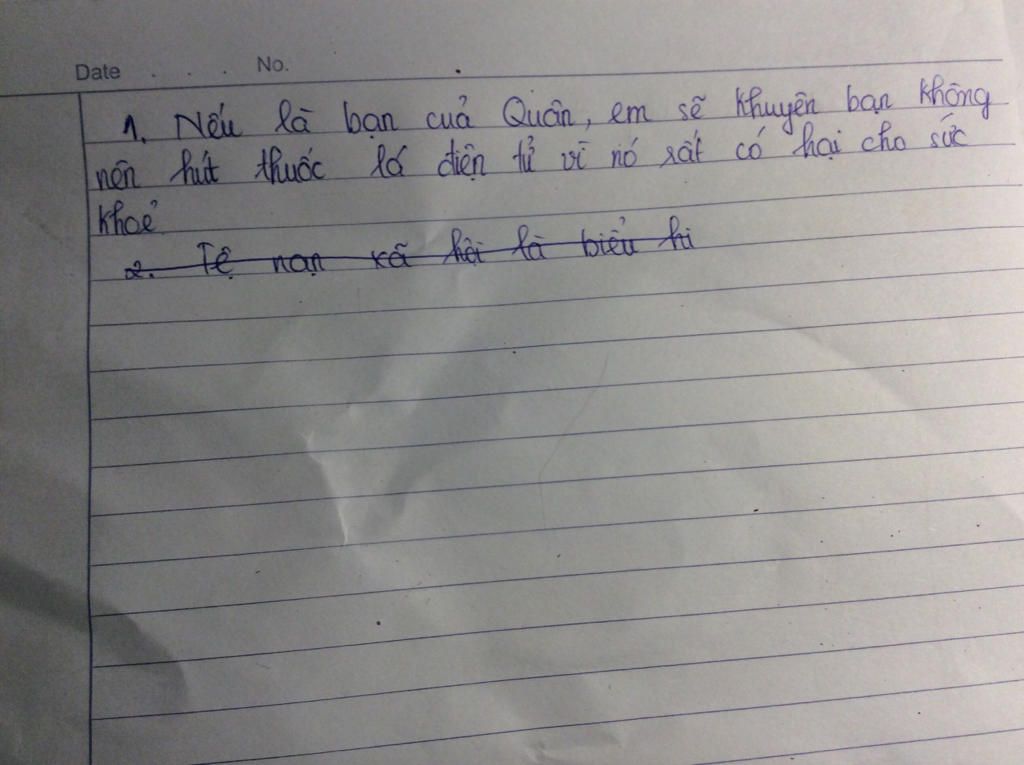 Date . . . No.
1. Nếu là bạn cuả Quân, em sẽ khuyên bạn không
nên hút thuốc lá điện tử vì nó rất có hại cho sức
khoẻ
2. Tệ nạn xã hội là biểu hi